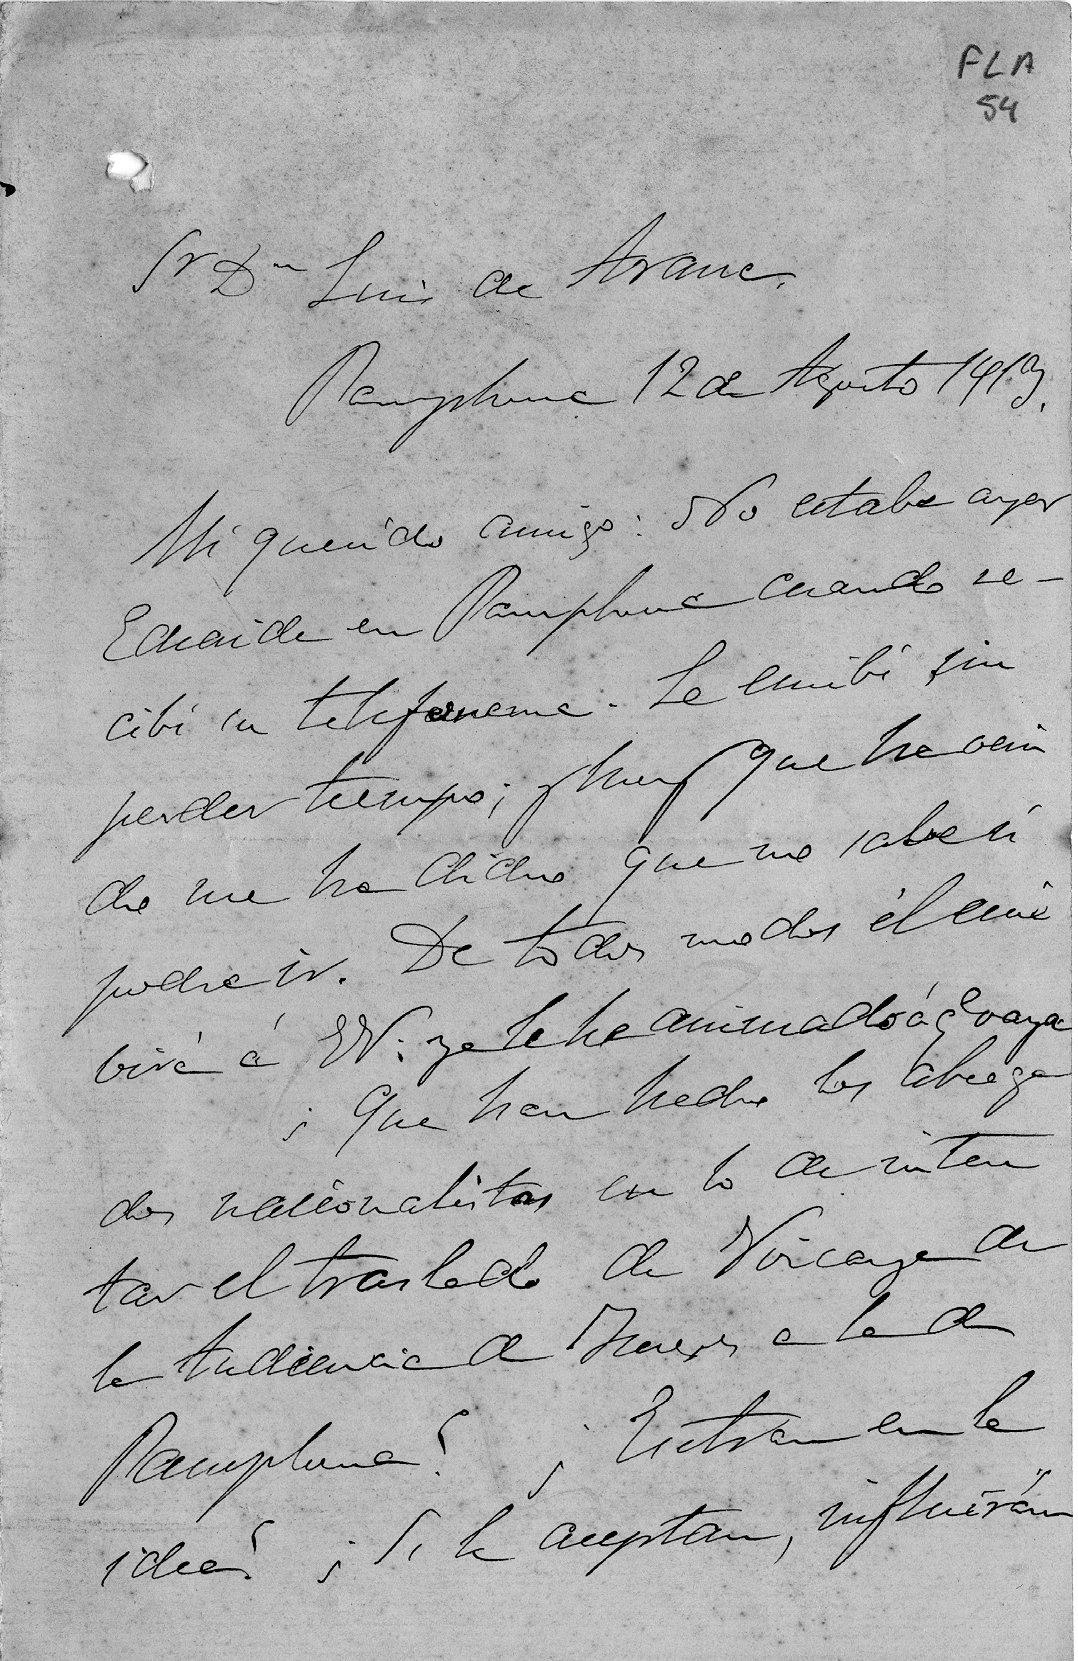 FLA
54
Sr Dn Luis de Arana.
Pamplona 12 de Agosto 1913.
Mi querido amigo: No estaba ayer
Echaide en Pamplona cuando re-
cibí su telefonema. Le escribí sin
perder tiempo; y hoy que ha veni
do me ha dicho que no sabe si
podrá ir. De todos modos él escri
birá á V. yo le he animado á q vaya
¿Que han hecho los aboga
dos nacionalistas en lo de inten
tar el traslado de Vizcaya de
la Audiencia de Burgos a la de
Pamplona? ¿Entran en la
idea? ¿Si la aceptan, influirán